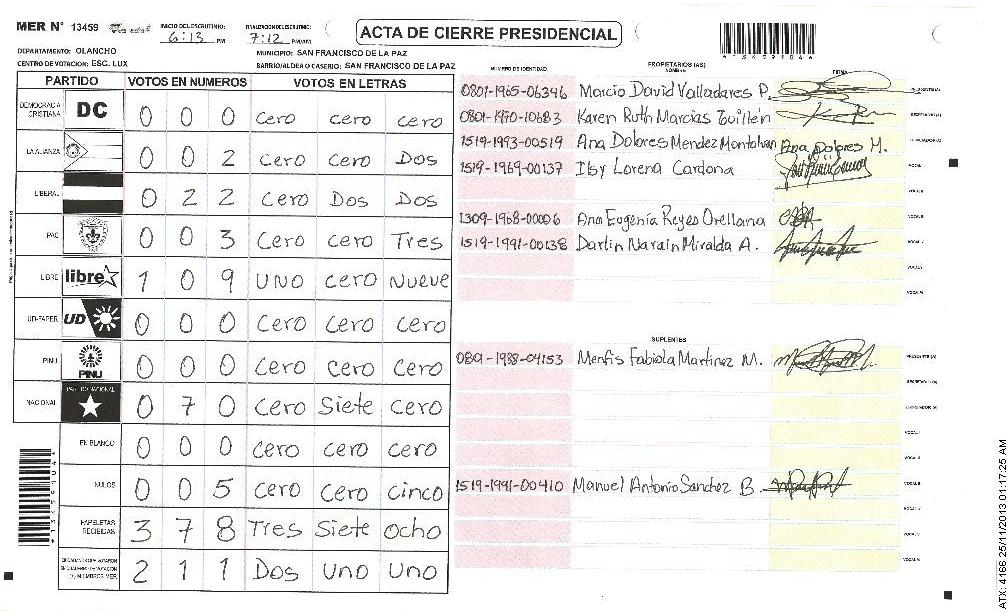 MER N° 13459
INICIO DEL ESCRUTINIO: 6:13 PM
FINALIZACION DEL ESCRUTINIO: 7:12 PM/AM
ACTA DE CIERRE PRESIDENCIAL
DEPARTAMENTO: OLANCHO
MUNICIPIO: SAN FRANCISCO DE LA PAZ
CENTRO DE VOTACION: ESC. LUX
BARRIO/ALDEA O CASERIO: SAN FRANCISCO DE LA PAZ
PARTIDO VOTOS EN NUMEROS VOTOS EN LETRAS
DEMOCRACIA CRISTIANA DC 0 0 0 cero cero cero
LA ALIANZA 0 0 2 cero cero Dos
LIBERAL 0 2 2 cero Dos Dos
PAC 0 0 3 cero cero Tres
LIBRE libre 1 0 9 uno cero Nueve
UD-FAPER UD 0 0 0 cero cero cero
PINU PINU 0 0 0 cero cero cero
NACIONAL PARTIDO NACIONAL 0 7 0 cero Siete cero
EN BLANCO 0 0 0 cero cero cero
NULOS 0 0 5 cero cero cinco
PAPELETAS RECIBIDAS 3 7 8 Tres Siete ocho
2 1 1 Dos uno uno
NUMERO DE IDENTIDAD PROPIETARIOS (AS) NOMBRE FIRMA
0801-1965-06346 Marcio David Valladares P.
0801-1970-10683 Karen Ruth Marcias Tuillén
1519-1993-00519 Ana Dolores Mendez Montalvan Ana Dolores M.
1519-1969-00137 Ilsy Lorena Cardona
1309-1968-00006 Ana Eugenia Reyes Orellana
1519-1991-00138 Darlin Narain Miralda A.
SUPLENTES
0801-1988-04153 Menfis Fabiola Martinez M.
1519-1991-00410 Manuel Antonio Sanchez B.
ATX: 4166 25/11/2013 01:17:25 AM